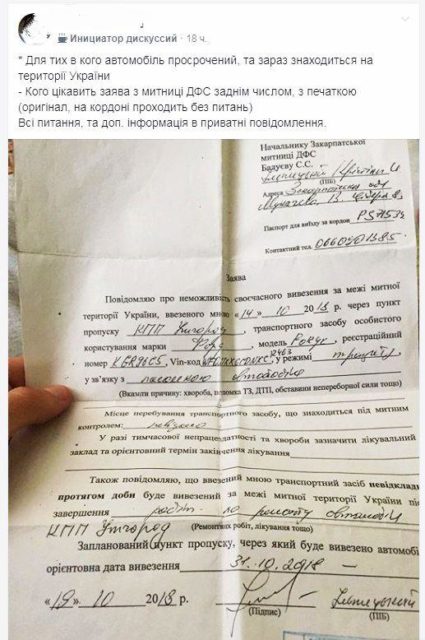 Инициатор дискуссий · 18 ч.
* Для тих в кого автомобіль просрочений, та зараз знаходиться на
території України
- Кого цікавить заява з митниці ДФС заднім числом, з печаткою
(оригінал, на кордоні проходить без питань)
Всі питання, та доп. інформація в приватні повідомлення.
Начальнику Закарпатської
митниці ДФС
Балуєву С.С.
(ПІБ)
Адреса Закарпатська обл
Паспорт для виїзду за кордон
Контактний тел.
Заява
Повідомляю про неможливість своєчасного вивезення за межі митної
території України, ввезеного мною «14» 10 2018 р. через пункт
пропуску КПП Ужгород, транспортного засобу особистого
користування марки Форд, модель Фокус, реєстраційний
номер, Vin-код, у режимі транзиту
у зв'язку з поломкою автомобіля
(Вкажіть причину: хвороба, поломка ТЗ, ДТП, обставини непереборної сили тощо)
Місце перебування транспортного засобу, що знаходиться під митним
контролем:
У разі тимчасової непрацездатності та хвороби зазначити лікувальний
заклад та орієнтовний термін закінчення лікування
Також повідомляю, що ввезений мною транспортний засіб невідкладно
протягом доби буде вивезений за межі митної території України піс
завершення робіт по ремонту автомобіля
(Ремонтних робіт, лікування тощо)
КПП Ужгород
Запланований пункт пропуску, через який буде вивезено автомобі
орієнтовна дата вивезення 31.10.2018
«19» 10 2018 р.
(Підпис) (ПІБ)